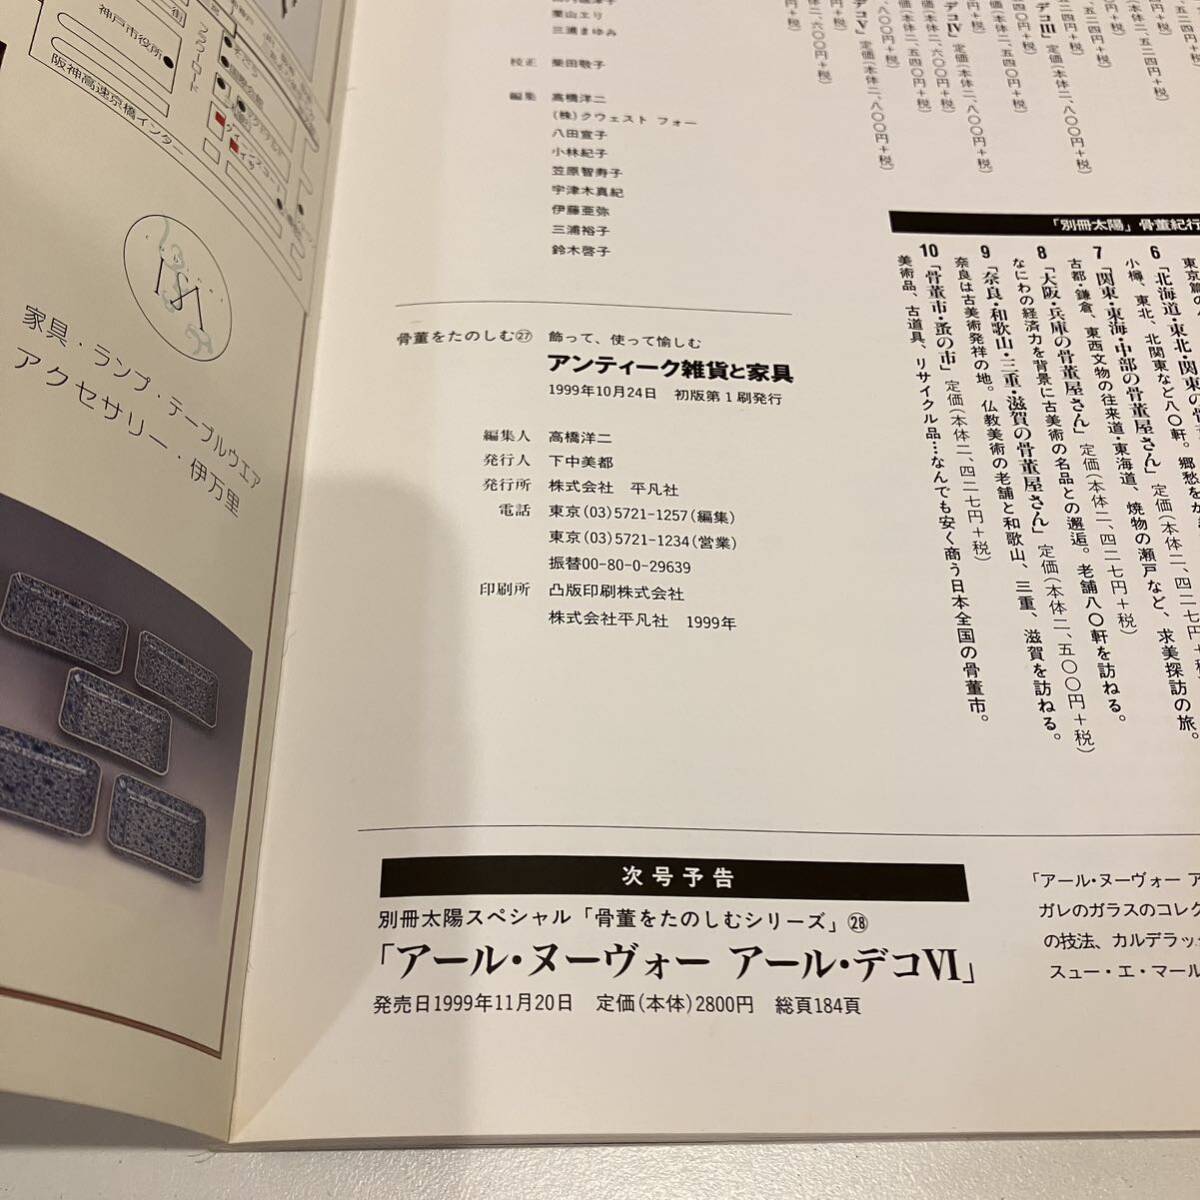 神戸市役所
阪神高速京橋インター
ISA
家具・ランプ・テーブルウエア
アクセサリー・伊万里
栗山エリ
三浦まゆみ
校正 柴田敬子
編集 高橋洋二
(株)クウェスト フォー
八田宣子
小林紀子
笠原智寿子
宇津木真紀
伊藤亜弥
三浦裕子
鈴木啓子
骨董をたのしむ㉗ 飾って、使って愉しむ
アンティーク雑貨と家具
1999年10月24日 初版第1刷発行
編集人 高橋洋二
発行人 下中美都
発行所 株式会社 平凡社
電話 東京(03)5721-1257(編集)
東京(03)5721-1234(営業)
振替00-80-0-29639
印刷所 凸版印刷株式会社
株式会社平凡社 1999年
「別冊太陽」骨董紀行
6 「北海道・東北・関東の骨
小樽、東北、北関東など八〇軒。郷愁をか
7 「関東・東海・中部の骨董屋さん」 定価(本体二、四二七円+税)
古都・鎌倉、東西文物の往来道・東海道、焼物の瀬戸など、求美探訪の旅。
8 「大阪・兵庫の骨董屋さん」 定価(本体二、四二七円+税)
なにわの経済力を背景に古美術の名品との邂逅。老舗八〇軒を訪ねる。
9 「奈良・和歌山・三重・滋賀の骨董屋さん」 定価(本体二、五〇〇円+税)
奈良は古美術発祥の地。仏教美術の老舗と和歌山、三重、滋賀を訪ねる。
10 「骨董市・蚤の市」 定価(本体二、四二七円+税)
美術品、古道具、リサイクル品…なんでも安く商う日本全国の骨董市。
次号予告
別冊太陽スペシャル「骨董をたのしむシリーズ」㉘
「アール・ヌーヴォー アール・デコⅥ」
発売日1999年11月20日 定価(本体)2800円 総頁184頁
「アール・ヌーヴォー ア
ガレのガラスのコレク
の技法、カルデラッ
スュー・エ・マール